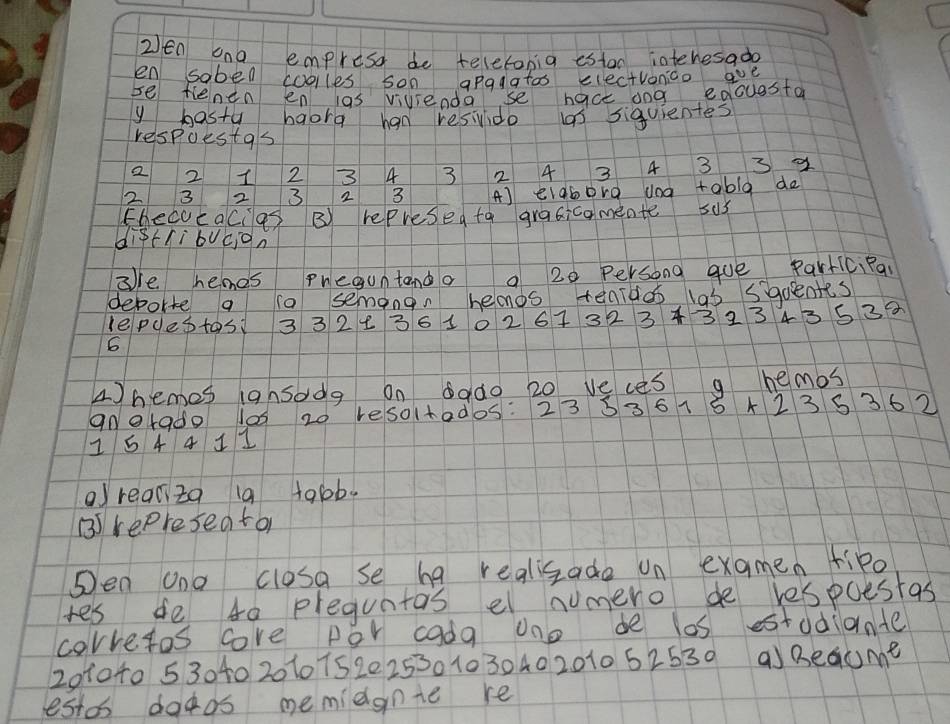 2) en una empresa de telefonia estan interesado
en saber cuales son aparatos electronico que
se tienen en las vivienda se hace una encuesta
y hasta haora han resivido las siguientes
respuestas
2 2 1 2 3 4 3 2 4 3 4 3 3 2
2 3 2 3 2 3 A) elabora una tabla de
frecuecacias B) representa graficamente sus
distribucion
3) le hemos preguntando a 20 persona que participan
deporte a la semana hemos tenidos las siguientes
repuestas: 3 3 2 1 3 6 1 0 2 6 1 3 2 3 1 3 2 3 4 3 5 3 2
6
4) hemos lansado on dado 20 veces y hemos
anotado los 20 resultados: 2 3 5 3 6 1 5 4 2 3 5 3 6 2
1 5 4 4 1 1
a) realiza la tabb.
B) representa
5) en una closa se ha realizado un examen tipo
tes de 40 preguntas el numero de respuestas
corretos sore por cada uno de los estudiante
201010 53040 2010152025301030402010 52530 a) Resume
estos datos memidante re